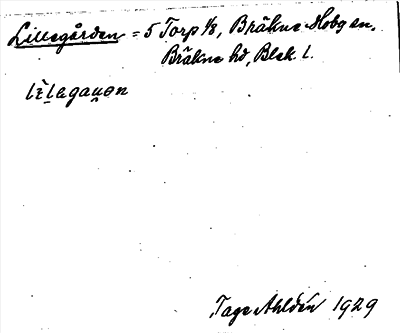 Lillegården = 5 Torp 1/8, Bräkne-Hoby sn,
Bräkne hd, Blek. l.
lìlagau̯ən
Tage Ahldén 1929